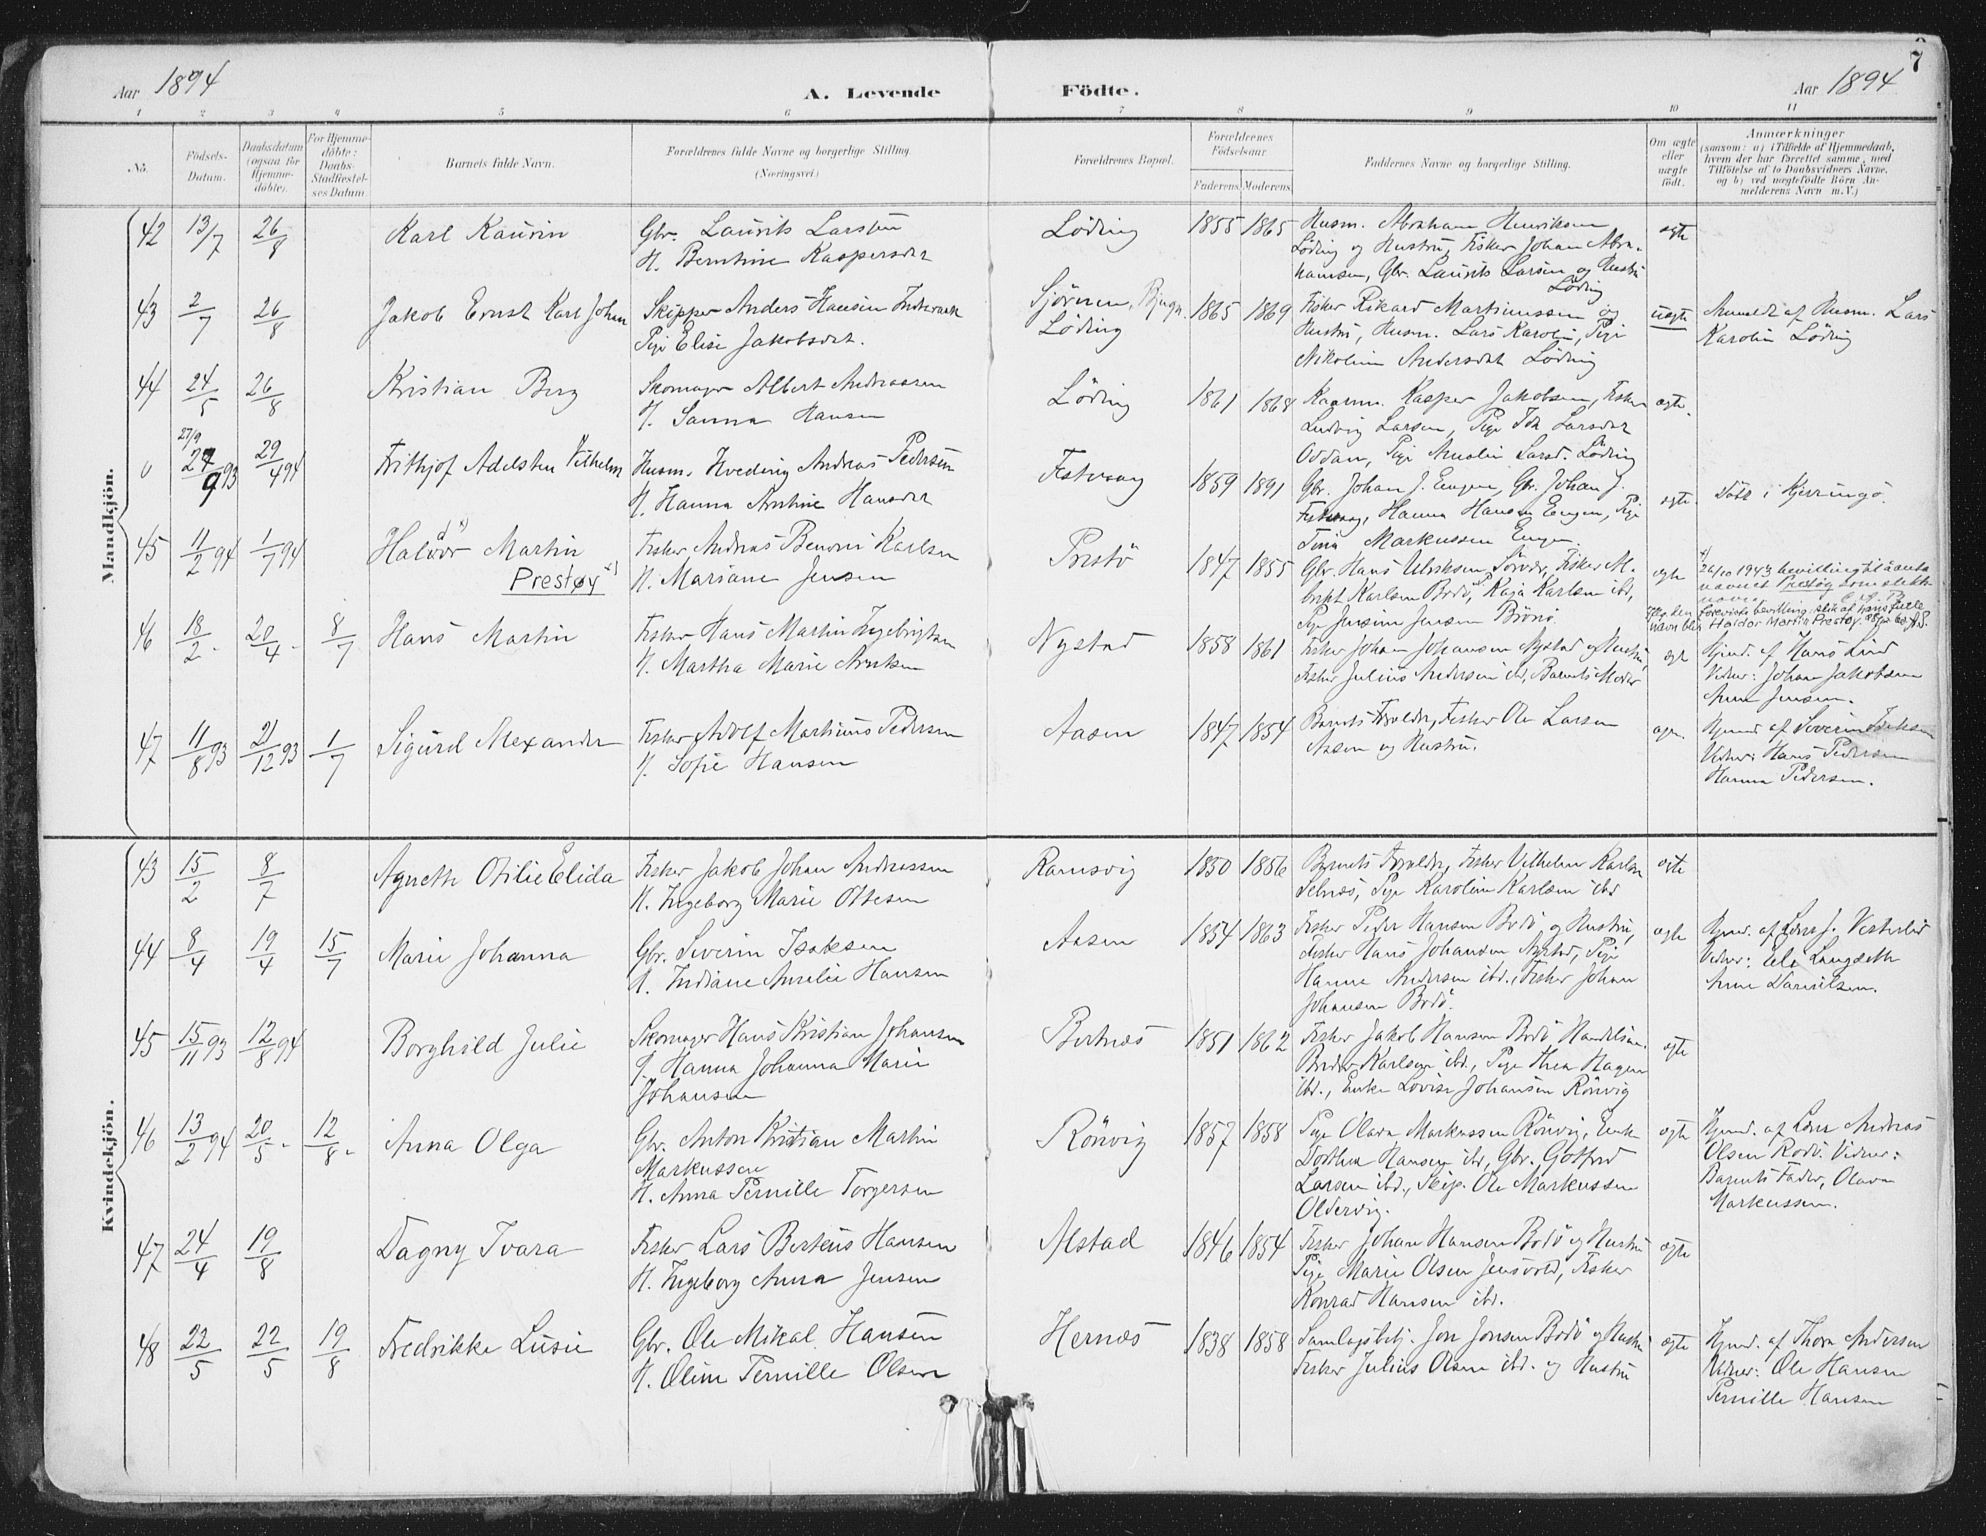 7
Aar 1894
A. Levende Födte.
Aar 1894
1 2 3 4 5 6 7 8 9 10 11
No.
Födsels-Datum.
Daabsdatum (ogsaa for Hjemme-döbte).
For Hjemme-döbte: Daabs-Stadfæstel-ses Datum.
Barnets fulde Navn.
Forældrenes fulde Navne og borgerlige Stilling.
(Næringsvei.)
Forældrenes Bopæl.
Forældrenes Födselsaar.
Faderens. Moderens.
Faddernes Navne og borgerlige Stilling.
Om ægte eller uægte födt.
Anmærkninger
(saasom: a) i Tilfælde af Hjemmedaab, hvem der har forrettet samme, med Tilföielse af to Daabsvidners Navne, og b) ved uægtefödte Börn An-melderens Navn m.V.)
Mandkjön.
42 13/7 26/8 Karl Kaurin
Gbr. Laurits Larsen
H. Berntine Kaspersdat
Löding 1855 1865
Husm. Abraham Henriksen
Löding og Hustru, Fisker Johan Abra-
hamsen, Gbr. Laurits Larsen og Hustru
Löding
ægte
43 2/7 26/8 Jakob Ernst Karl Johan
Skipper Anders Hansen
Pige Elise Jakobsdat.
Löding 1865 1869
Fisker Rikard Martinussen og
Hustru, Husm. Lars Karoli, Pige
Nikoline Andersdat Löding
uægte
Anmeldt af Husm. Lars
Karoli Löding
44 24/5 26/8 Kristian Berg
Skomager Albert Andreassen
H. Sanna Hansen
Löding 1861 1868
Kasper Jakobsen, Fisker
Ludvig Larsen, Pige Ida Larsdat
Oddan, Pige Larsd. Löding
ægte.
0 27/9 27/9 93 29/4 94 Frithjof Adelsten Vilhelm
Husm. Hveding Andreas Pedersen
H. Hanna Arntine Hansdat
Festvaag 1859 1891
Gbr. Johan J. Engen, Gbr. Johan J.
Festvaag, Hanna Hansen Engen, Pige
Tina Markussen Engen.
ægte.
Döbt i Kjerringö.
45 11/2 94 1/7 94 Halvor Martin
Prestøy x)
Fisker Andreas Benoni Karlsen
H. Mariane Jensen
Prestö 1847 1855
Gbr. Hans Ulriksen Sörvær, Fisker
Karlsen Bodö, Kaja Karlsen ibd,
Pige Jensine Jensen Brönö.
ægte
x) 26/10 1943 bevilling til aa anta
navnet Prestøy som slekts-
navn.
46 18/2 - 20/4 - 8/7 Hans Martin
Fisker Hans Martin Ingebrigtsen
H. Martha Marie Arntsen
Nystad 1858 1861
Fisker Johan Johansen Nystad og Hustru,
Fisker Julius Andersen ibd, Barnets Moder
Hjmd. af Hans Lind
Vidner: Johan Jakobsen
Anne Jensen.
47 11/8 93 21/12 93 1/7 Sigurd Alexander
Fisker Adolf Martinus Pedersen
H. Sofie Hansen
Aasen 1847 1854
Barnets Forældre, Fisker Ole Larsen
Aasen og Hustru.
Hjmd af Severin Isaksen
Vidner: Hans Pedersen
Hanna Pedersen.
Kvindekjön.
43 15/2 8/7 Agneth Otilie Elida
Fisker Jakob Johan Andreassen
H. Ingeborg Marie Ottesen
Ramsvig 1850 1856
Barnets Forældre, Fisker Vilhelm Karlsen
Selnæs, Pige Karoline Karlsen ibd
44 8/4 19/4 15/7 Marie Johanna
Gbr. Severin Isaksen
H. Indiane Amalie Hansen
Aasen 1854 1863
Fisker Peder Hansen Bodö og Hustru,
Fisker Hans Johansen Nystad, Pige
Hanna Andersen ibd., Fisker Johan
Johansen Bodö.
ægte
Hjmd. af Lærer J. Vesterlid
Vidner: Langseth
Anne Danielsen.
45 15/11 93 12/8 94 Borghild Julie
Skomager Hans Kristian Johansen
H. Hanna Johanna Marie
Johansen
Bertnæs 1851 1862
Fisker Jakob Hansen Bodö, Handelsm.
Karlsen ibd., Pige Thea Hagen
ibd., Enke Lovise Johansen Rönvig
ægte
46 13/2 94 20/5 - 12/8 - Anna Olga
Gbr. Anton Kristian Martin
Markussen
H. Anna Pernille Torgersen
Rönvig 1857 1858
Pige Olava Markussen Rönvig, Enke
Dorthea Hansen ibd, Gbr. Gotfred
Larsen ibd., Skip. Ole Markussen
Oldervig.
ægte
Hjmd. af Lærer Andreas
Olsen Bodö. Vidner:
Barnets Fader, Olava
Markussen.
47 24/4 19/8 Dagny Ivara
Fisker Lars Berteus Hansen
H. Ingeborg Anna Jensen
Alstad 1846 1854
Fisker Johan Hansen Bodö og Hustru
Pige Marie Olsen Jensvold, Fisker
Konrad Hansen ibd.
ægte
48 22/5 22/5 19/8 Fredrikke Lusie
Gbr. Ole Mikal Hansen
H. Oline Pernille Olsen
Hernæs 1838 1858
Samlagsbetj. Jon Jonsen Bodö og Hustru
Fisker Julius Olsen ibd. og Hustru
ægte
Hjmd. af Thora Andersen
Vidner: Ole Hansen
Pernille Hansen